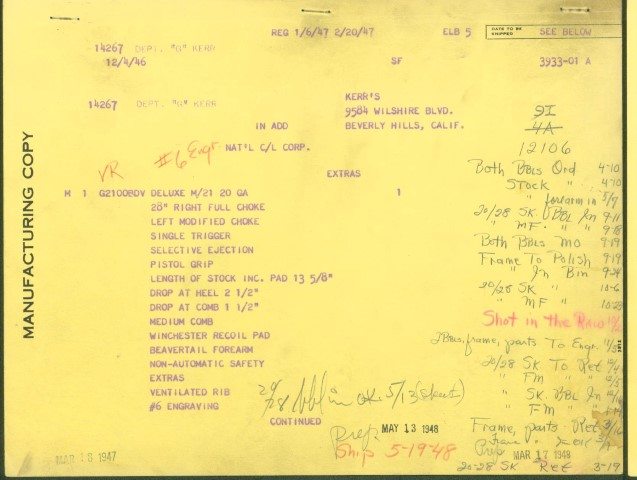 REG 1/6/47 2/20/47 ELB 5 DATE TO BE SHIPPED SEE BELOW
14267 DEPT. "G" KERR
12/4/46 SF 3933-01 A
KERR'S
14267 DEPT. "G" KERR 9584 WILSHIRE BLVD.
IN ADD BEVERLY HILLS, CALIF.
NAT'L C/L CORP.
VR #6 Engr
EXTRAS
H 1 G2100BDV DELUXE M/21 20 GA 1
28" RIGHT FULL CHOKE
LEFT MODIFIED CHOKE
SINGLE TRIGGER
SELECTIVE EJECTION
PISTOL GRIP
LENGTH OF STOCK INC. PAD 13 5/8"
DROP AT HEEL 2 1/2"
DROP AT COMB 1 1/2"
MEDIUM COMB
WINCHESTER RECOIL PAD
BEAVERTAIL FOREARM
NON-AUTOMATIC SAFETY
EXTRAS
VENTILATED RIB
#6 ENGRAVING
CONTINUED
MANUFACTURING COPY
4A
12106
Both BBLS Ord 4-10
Stock " 4-10
" forearm in 5/7
20/28 SK BBL In 9-11
" MF " " 9-8
Both BBLS MO 9-19
Frame To Polish 9-19
" In Bin 9-24
20/28 SK " 10-6
" MF "
Shot in the Raw
frame, parts To Engr.
20/28 SK To Ret
" FM "
" SK BBL In
" FM "
Frame, parts Ret
Frame "
MAR 17 1948
20-28 SK Ret 3-19
28 in OK 5/13 (Skeet)
MAY 13 1948
Ship 5-19-48
MAR 18 1947